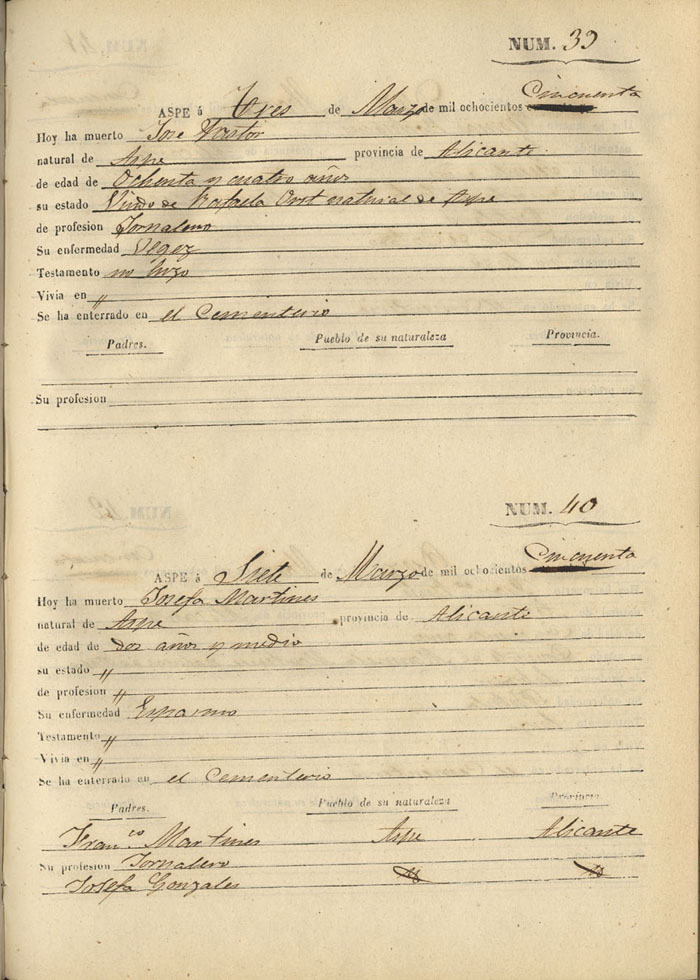 NUM. 39
ASPE á Tres de Marzo de mil ochocientos Cincuenta
Hoy ha muerto Jose Pastor
natural de Aspe provincia de Alicante
de edad de Ochenta y cuatro años
su estado Viudo de Rafaela natural de Aspe
de profesion Jornalero
Su enfermedad Vegez
Testamento no hizo
Vivia en "
Se ha enterrado en el Cementerio
Padres. Pueblo de su naturaleza Provincia.
Su profesion
NUM. 40
ASPE á Siete de Marzo de mil ochocientos Cincuenta
Hoy ha muerto Josefa Martines
natural de Aspe provincia de Alicante
de edad de dos años y medio
su estado "
de profesion "
Su enfermedad Espasmo
Testamento "
Vivia en "
Se ha enterrado en el Cementerio
Padres. Pueblo de su naturaleza Provincia
Fran.co Martines Aspe Alicante
Su profesion Jornalero
Josefa Gonzales